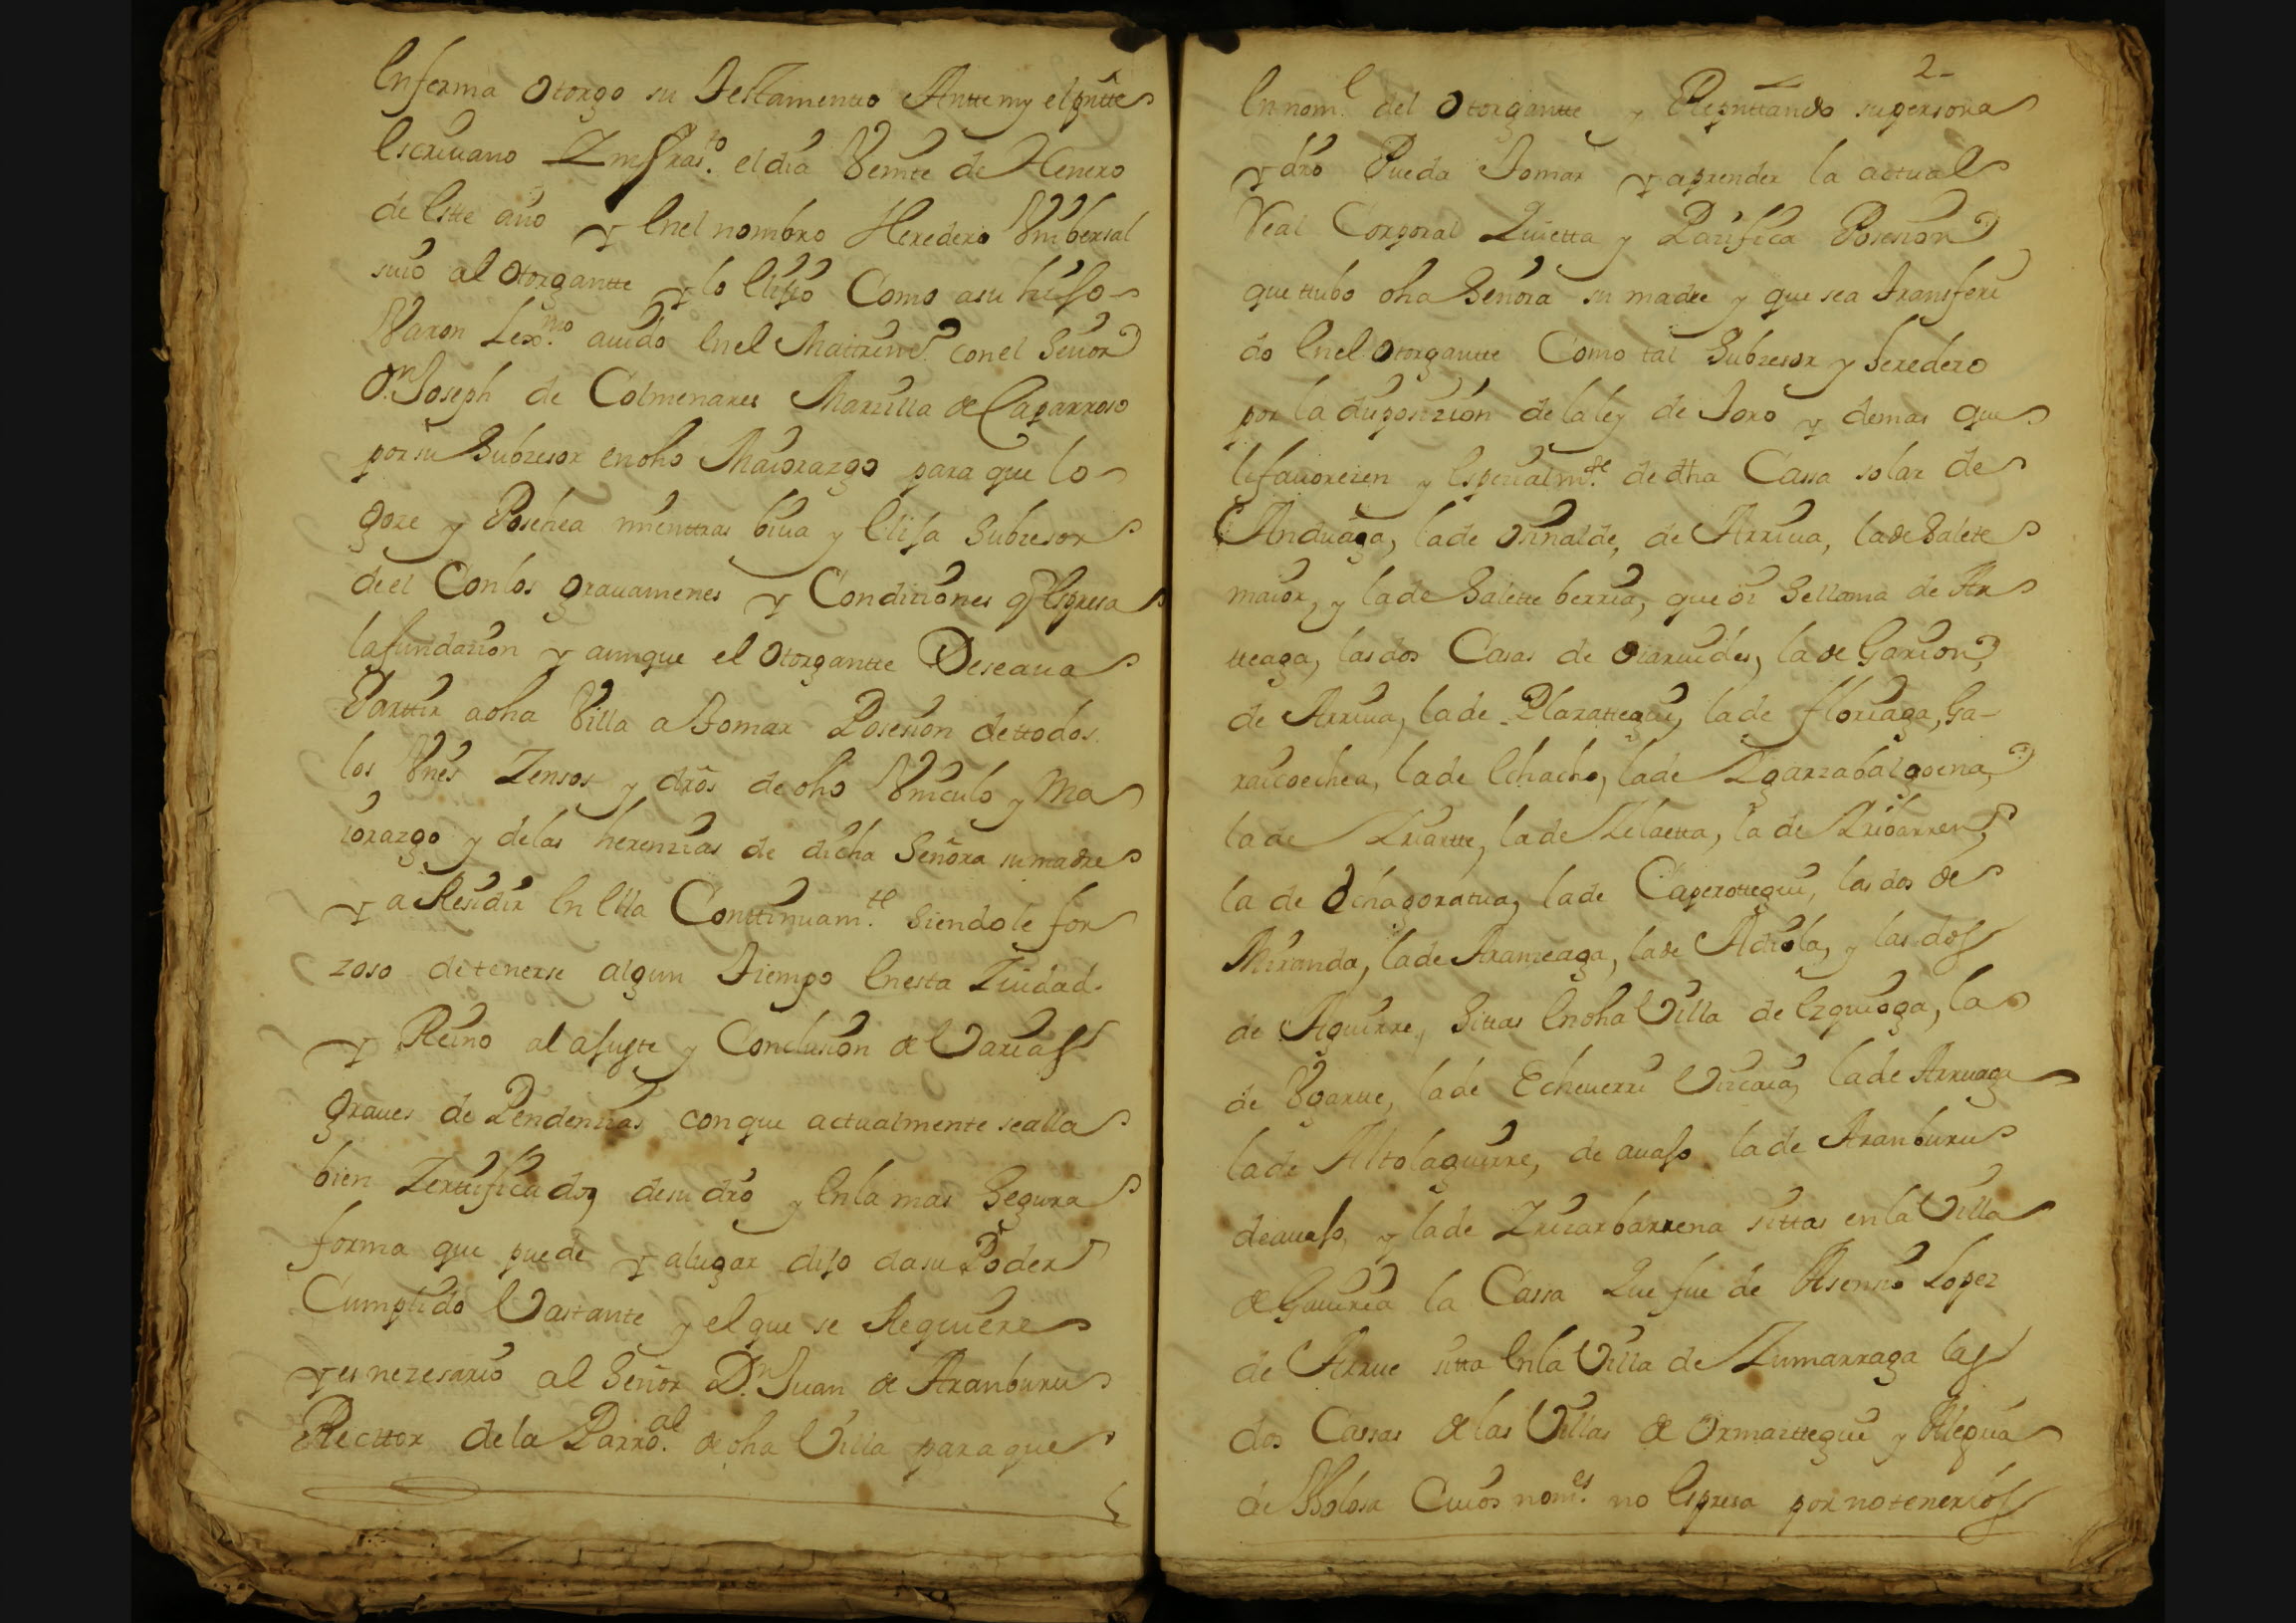 Enferma otorgo su Testamento Antte my el pntte
Escriuano Ynfrasto. el dia Veinte de Henero
de Este año y En el nombro Heredero Vnibersal
suio al otorgantte y lo Elijio Como a su hijo
Varon Lexmo. auido En el Matrime. con el Señor
Dn. Joseph de Colmenares Marzilla de Caparroso
por su Subzesor en dho Maiorazgo para que lo
goze y Posehea mienttras biua y Elija Subzesor
de el Con los grauamenes y Condiziones q Espresa
la fundazion y aunque el otorgantte Deseaua
Parttir a dha Villa a Tomar Posesion de ttodos
los Vnes Zensos y dros de dho Vinculo y Ma
iorazgo y de las herenzias de dicha Señora su madre
y a Residir En Ella Conttinuamte. siendole for
zoso detenerse algun Tiempo En esta Ziudad
y Reino al ajuste y Conclusion de Varias
graues dePendenzias con que actualmente se alla
bien Zerttificado, de su dro y En la mas Segura
forma que puede y a lugar dijo da su Poder
Cumplido Vastante y el que se Requiere
y es nezesario al Señor Dn. Juan de Aranburu
Recttor de la Parroal. de dha Villa para que
2-
En nome. del otorgantte y Repnttando su persona
y dro Pueda Tomar y aprender la actual
Real Corporal Quietta y Pazifica Posesion
que ttubo dha Señora su madre y que sea Transferi
do En el otorgantte Como tal Subzesor y heredero
por la disposizion de la ley de Toro y demas que
le fauorezen y Espezialmte. de dha Cassa solar de
Anduaga, la de oñinalde, de Arriua, la de Salete
maior, y la de Salette berria, que oi Se llama de Ar
tteaga, las dos Casas de oiaruides, la de Garion,
de Arriua, la de Plazattegui, la de floriaga, Ga-
raicoechea, la de Echacho, la de Ygarzabalgoena,
la de Yriartte, la de Zelaetta, la de Yribarren,
la de Echagoratua, la de Caperottegui, las dos de
Miranda, la de Aranzeaga, la de Adiola, y las dos
de Aguirre, Sittas En dha Villa de Ezquioga, la
de Vgartte, la de Echeuerri Vizcaia, la de Arruaga
la de Altolaguirre, de auajo la de Aranburu
de auajo, y la de Yrizarbarrena sittas en la Villa
de Gauiria la Cassa Que fue de Asensio Lopez
de Arrue sitta En la Villa de Zumarraga las
dos Cassas de las Villas de Ormaizttegui y Alegria
de Tolosa Cuios nomes. no Espresa por no tenerlos